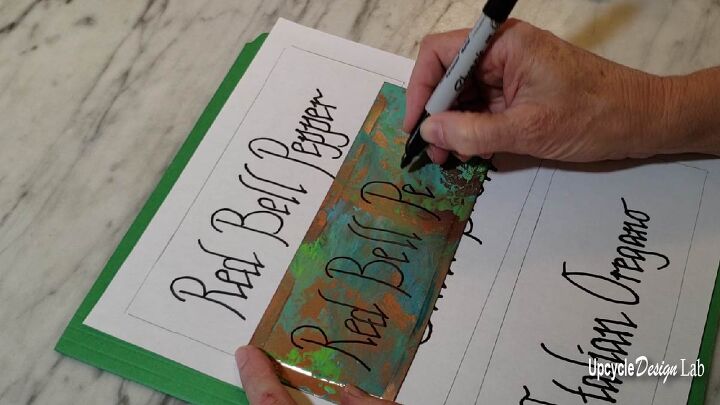 Red Bell Pepper
Red Bell Pe
Italian Oregano
Sharpie
UpcycleDesign Lab